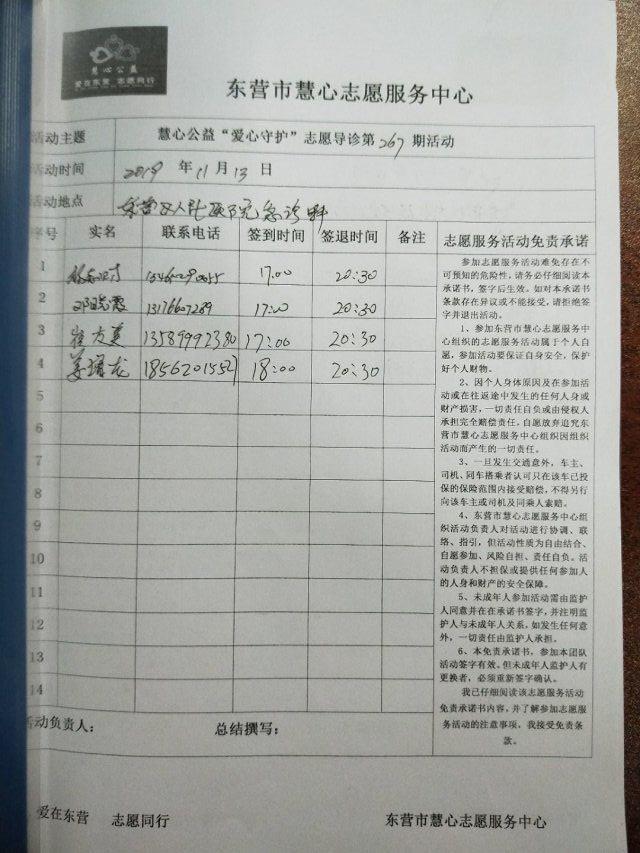 慧心公益
爱在东营 志愿同行
东营市慧心志愿服务中心
活动主题 慧心公益“爱心守护”志愿导诊第267期活动
活动时间 2019 年 11 月 13 日
活动地点 东营区人民医院急诊科
序号 实名 联系电话 签到时间 签退时间 备注 志愿服务活动免责承诺
1 17:00 20:30
2 邓晓霞 13176607289 17:00 20:30
3 崔友美 13589992380 17:00 20:30
4 姜瑞龙 18562015527 18:00 20:30
5
6
7
8
9
10
11
12
13
14
参加志愿服务活动难免存在不
可预知的危险性，请务必仔细阅读本
承诺书，签字后生效。如对本承诺书
条款存在异议或不能接受，请拒绝签
字并退出活动。
1、参加东营市慧心志愿服务中
心组织的志愿服务活动属于个人自
愿，参加活动要保证自身安全，保护
好个人财物。
2、因个人身体原因及在参加活
动或在往返途中发生的任何人身或
财产损害，一切责任自负或由侵权人
承担完全赔偿责任。自愿放弃追究东
营市慧心志愿服务中心组织因组织
活动而产生的一切责任。
3、一旦发生交通意外，车主、
司机、同车搭乘者认可只在该车已投
保的保险范围内接受赔偿，不得另行
向该车主或司机及同乘人索赔。
4、东营市慧心志愿服务中心组
织活动负责人对活动进行协调、联
络、指引，但活动性质为自由结合、
自愿参加、风险自担、责任自负。活
动负责人不担保或提供任何参加人
的人身和财产的安全保障。
5、未成年人参加活动需由监护
人同意并在在承诺书签字，并注明监
护人与未成年人关系，如发生任何意
外，一切责任由监护人承担。
6、本免责承诺书，参加本团队
活动签字有效。但未成年人监护人有
更换者，必须重新签字确认。
我已仔细阅读该志愿服务活动
免责承诺书内容，并了解参加志愿服
务活动的注意事项。我接受免责条
款。
活动负责人： 总结撰写：
爱在东营 志愿同行 东营市慧心志愿服务中心